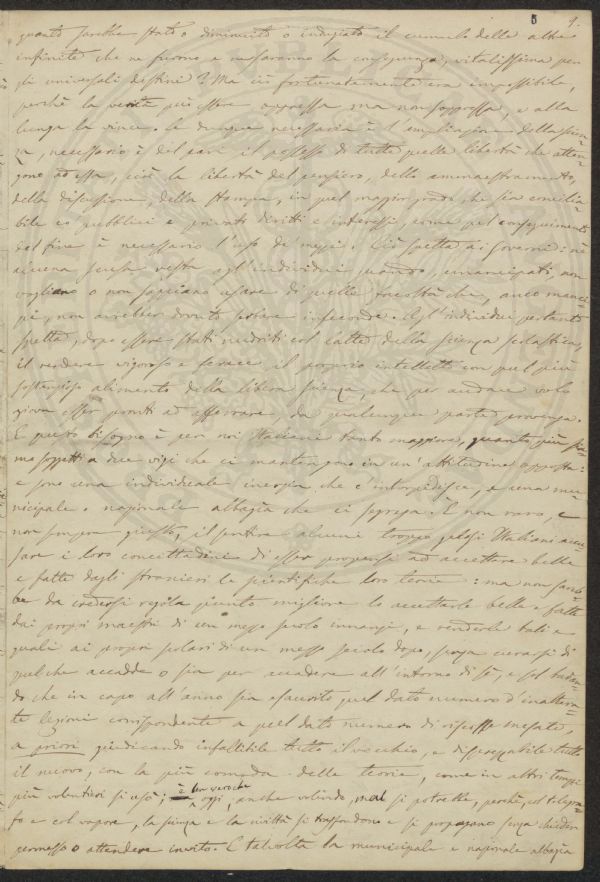 8 9.
quanto sarebbe stato o diminuito o indugiato il cumulo delle altre
infinite che ne furono e ne saranno la conseguenza, vitalissima per
gli universali destini? Ma ciò fortunatamente era impossibile,
perchè la verità può essere oppressa ma non soppressa, e alla
lunga la vince. Se dunque necessaria è l'ampliazione della scien-
za, necessario è del pari il possesso di tutte quelle libertà che atten-
gono ad essa, cioè la libertà del pensiero, dello ammaestramento,
della discussione, della stampa, in quel maggior grado che sia concilia-
bile co' pubblici e privati diritti e interessi, come pel conseguimento
del fine è necessario l'uso di mezzi. Ciò spetta ai governi: nè
alcuna scusa resta agl'individui quando, emancipati, non
vogliano o non sappiano usare di quelle facoltà che, anco manci-
pi, non avrebber dovuto patire infeconde. Agl'individui pertanto
spetta, dopo essere stati nudriti col latte della scienza scolastica,
il rendere vigoroso e ferace il proprio intelletto con quel più
sostanzioso alimento della libera scienza, che per audace volo
giova esser pronti ad afferrare da qualunque parte provenga.
E questo bisogno è per noi Italiani tanto maggiore, quanto più sia-
mo soggetti a due vizi che ci mantengono in un'attitudine opposta:
e sono una individuale inerzia che c'intorpidisce, e una mu-
nicipale o nazionale albagia che ci segrega. È non raro, e
non sempre giusto, il sentire alcuni troppo gelosi Italiani accu-
sare i loro concittadini di esser propensi ad accettare belle
e fatte dagli stranieri le scientifiche loro teorie: ma non sareb-
be da credersi regola punto migliore lo accettarle belle e fatte
dai propri maestri di un mezzo secolo innanzi, e renderle tali e
quali ai propri scolari di un mezzo secolo dopo, senza curarsi di
quel che accadde o sia per accadere all'intorno di sè, e sol badan-
do che in capo all'anno sia esaurito quel dato numero d'inaltera-
te lezioni corrispondente a quel dato numero di riscosse mesate,
a priori giudicando infallibile tutto il vecchio, e disprezzabile tutto
il nuovo, con la più comoda delle teorie, come in altri tempi
più volentieri si usò; è ben vero che
oggi, anche volendo, mal si potrebbe, perchè, col telegra-
fo e col vapore, la scienza e la civiltà si trasfondono e si propagano senza chieder
permesso o attendere invito. E talvolta la municipale e nazionale albagia